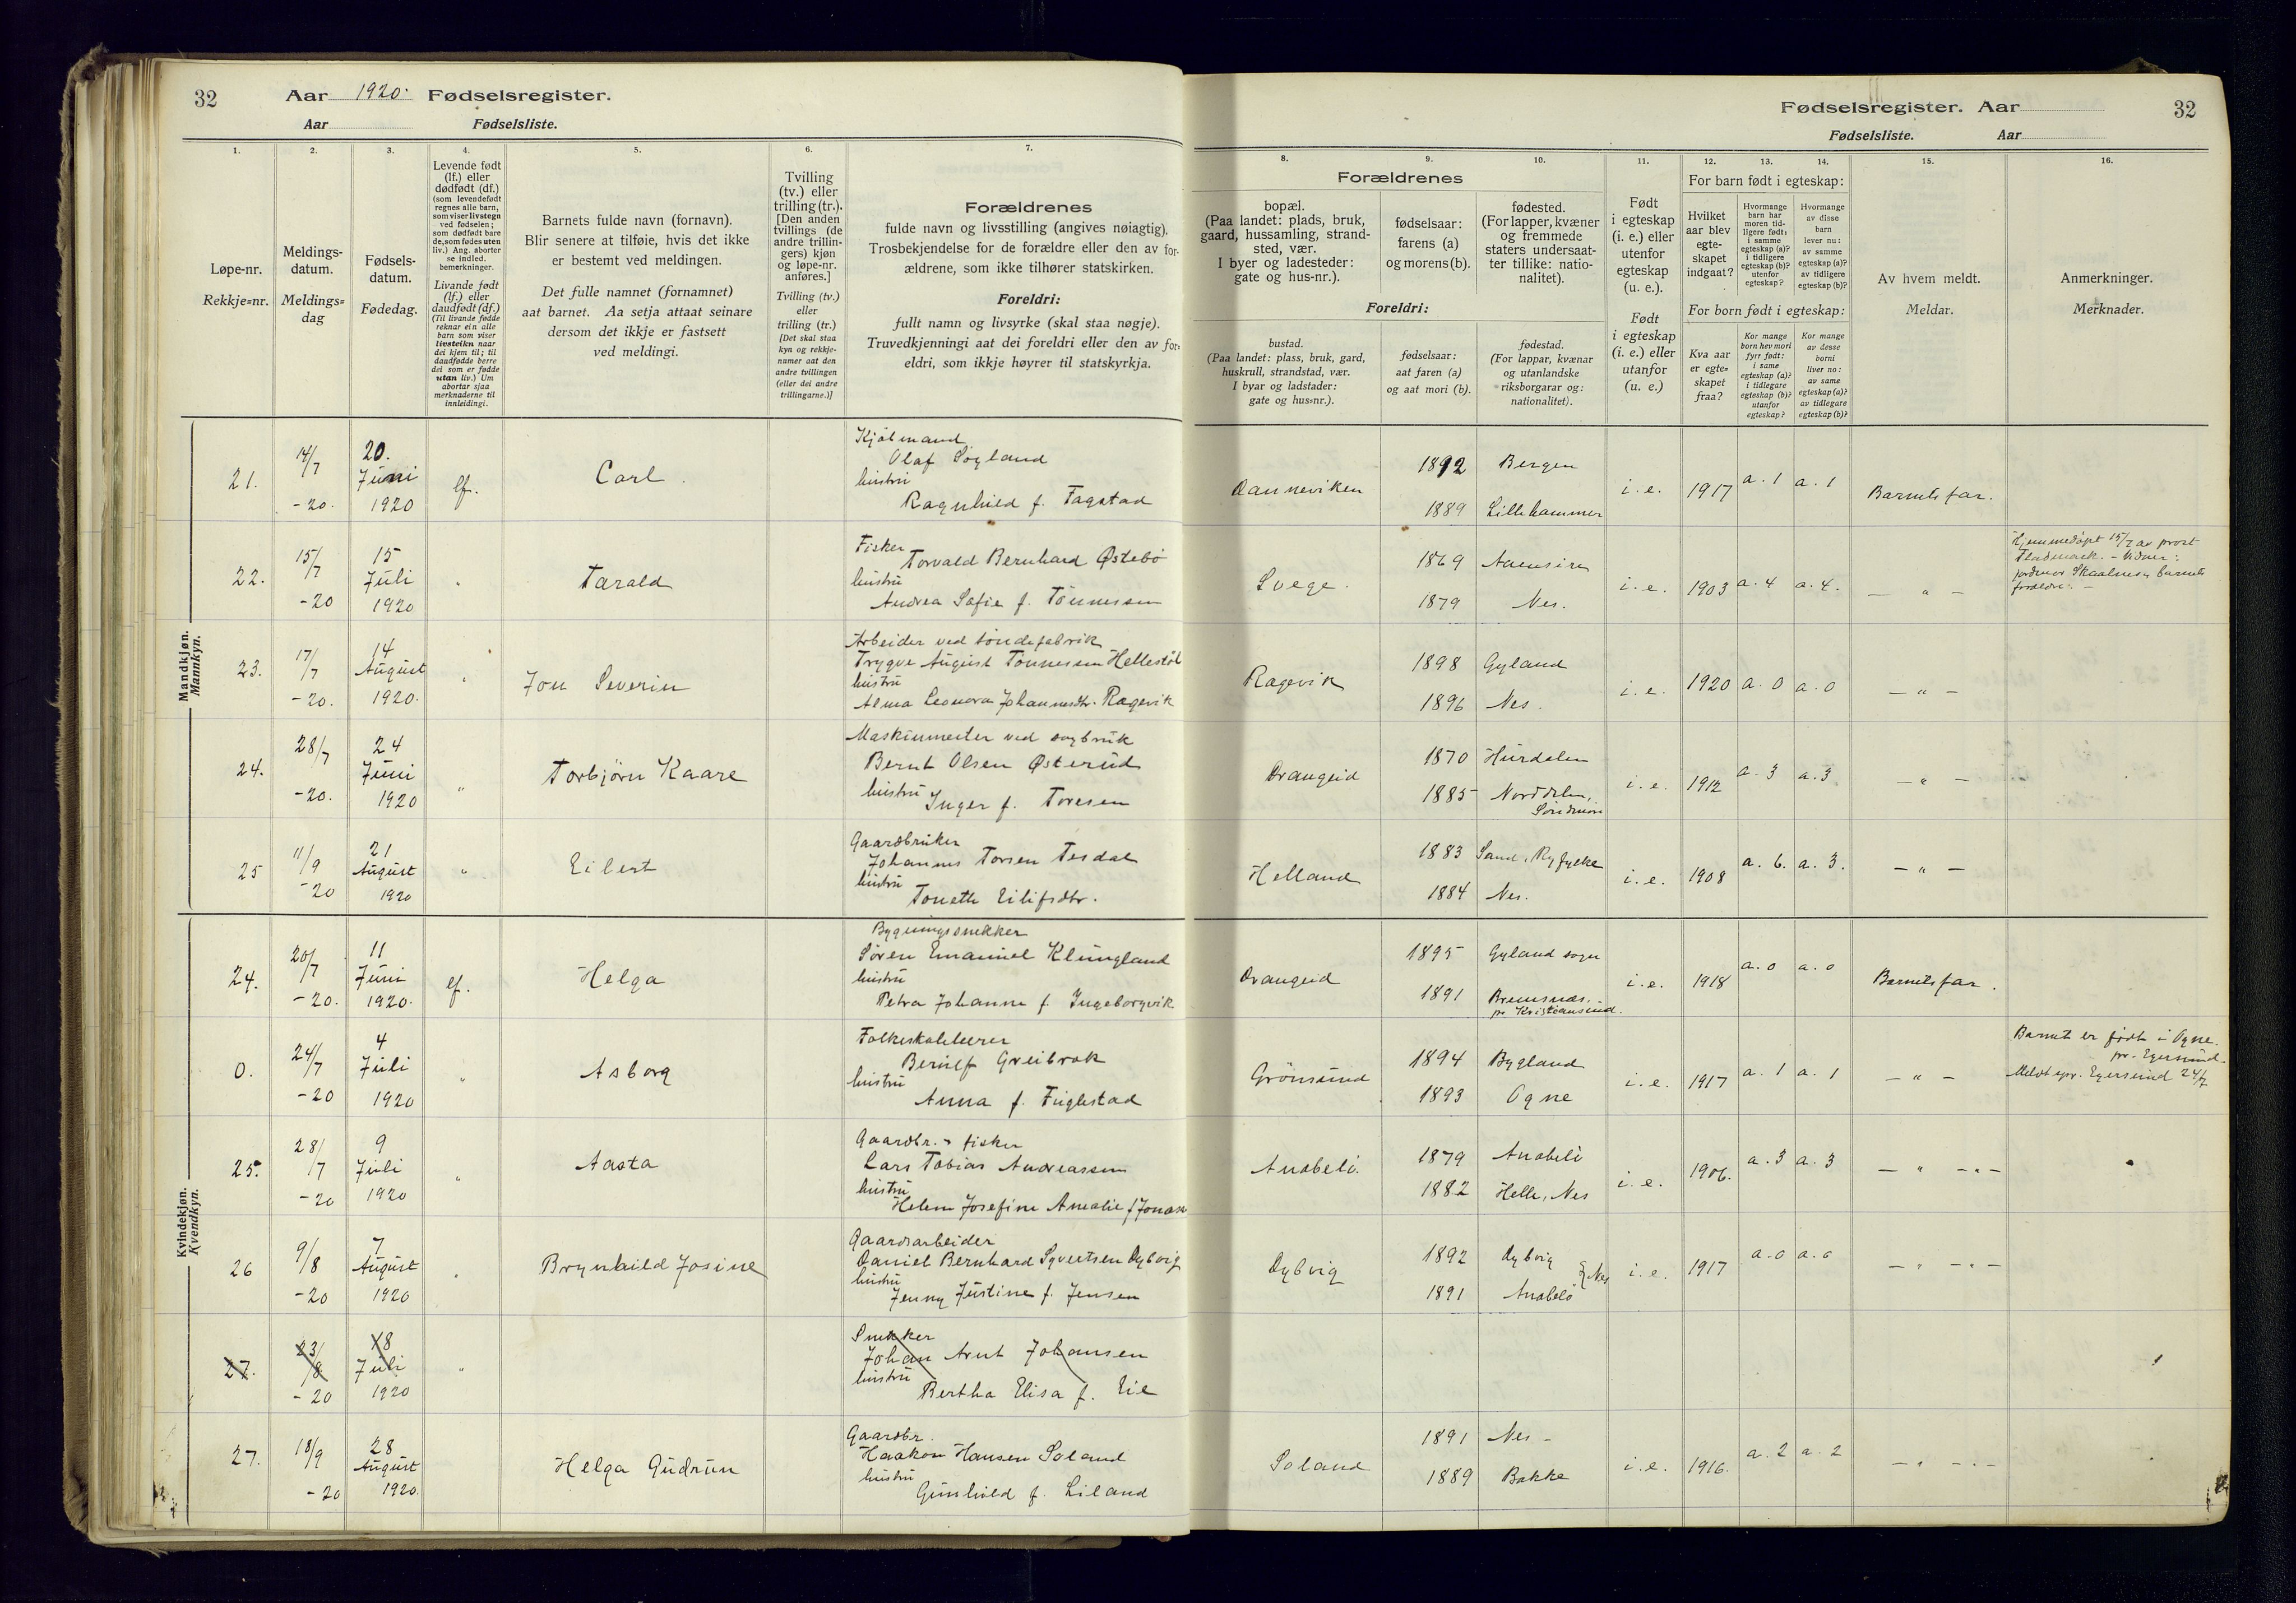 32 Aar 1920. Fødselsregister.
Aar Fødselsliste.
Fødselsregister. Aar 32
Fødselsliste. Aar
1. 2. 3. 4. 5. 6. 7.
Løpe-nr.
Rekkje=nr.
Meldings-
datum.
Meldings=
dag
Fødsels-
datum.
Fødedag.
Levende født
(lf.) eller
dødfødt (df.)
(som levendefødt
regnes alle barn,
som viser livstegn
ved fødselen;
som dødfødt bare
de, som fødes uten
liv.) Ang. aborter
se indled.
bemerkninger.
Livande født
(lf.) eller
daudfødt (df.)
(Til livande fødde
reknar ein alle
barn som viser
livsteikn naar
dei kjem til; til
daudfødde berre
dei som er fødde
utan liv.) Um
abortar sjaa
merknaderne til
innleidingi.
Barnets fulde navn (fornavn).
Blir senere at tilføie, hvis det ikke
er bestemt ved meldingen.
Det fulle namnet (fornamnet)
aat barnet. Aa setja attaat seinare
dersom det ikkje er fastsett
ved meldingi.
Tvilling
(tv.) eller
trilling (tr.).
[Den anden
tvillings (de
andre trillin-
gers) kjøn
og løpe-nr.
anføres.]
Tvilling (tv.)
eller
trilling (tr.)
[Det skal staa
kyn og rekkje-
numer aat den
andre tvillingen
(eller dei andre
trillingarne.)]
Forældrenes
fulde navn og livsstilling (angives nøiagtig).
Trosbekjendelse for de forældre eller den av for-
ældrene, som ikke tilhører statskirken.
Foreldri:
fullt namn og livsyrke (skal staa nøgje).
Truvedkjenningi aat dei foreldri eller den av for=
eldri, som ikkje høyrer til statskyrkja.
8. 9. 10. 11. 12. 13. 14. 15. 16.
Forældrenes
bopæl.
(Paa landet: plads, bruk,
gaard, hussamling, strand-
sted, vær.
I byer og ladesteder:
gate og hus-nr.).
fødselsaar:
farens (a)
og morens (b).
fødested.
(For lapper, kvæner
og fremmede
staters undersaat-
ter tillike: natio-
nalitet).
Foreldri:
bustad.
(Paa landet: plass, bruk, gard,
huskrull, strandstad, vær.
I byar og ladstader:
gate og hus=nr.).
fødselsaar:
aat faren (a)
og aat mori (b).
fødestad.
(For lappar, kvænar
og utanlandske
riksborgarar og:
nationalitet).
Født
i egteskap
(i. e.) eller
utenfor
egteskap
(u. e.).
Født
i egteskap
(i. e.) eller
utanfor
(u. e.)
For barn født i egteskap:
Hvilket
aar blev
egte-
skapet
indgaat?
Hvormange
barn har
moren tid-
ligere født:
i samme
egteskap (a)?
i tidligere
egteskap (b)?
utenfor
egteskap?
Hvormange
av disse
barn
lever nu:
av samme
egteskap (a)?
av tidligere
egteskap (b)?
For born født i egteskap:
Kva aar
er egte=
skapet
fraa?
Kor mange
born hev mori
fyrr født:
i same
egteskap (a)?
i tidlegare
egteskap (b)?
utanfor
egteskap?
Kor mange
av desse
borni
liver no:
av same
egteskap (a)?
av tidlegare
egteskap (b)?
Av hvem meldt.
Meldar.
Anmerkninger.
Merknader.
Mandkjøn.
Mannkyn.
21. 14/7 -20. 20. Juni 1920 lf. Carl.
Kjølmand
Olaf Søyland
hustru
Ragnhild f. Fagstad
Danneviken 1892 Bergen
1889 Lillehammer
i. e. 1917 a. 1 a. 1 Barnets far.
22. 15/7 -20 15 Juli 1920 " Tarald
Fisker
Torvald Bernhard Østebö
hustru
Andrea Sofie f. Tönnessen
Svege. 1869 Aaensire
1879 Nes.
i. e. 1903 a. 4 a. 4. — " —
Hjemmedøpt 15/7 av prost
Flodmark. - Vidner:
jordmor Skaalnes, barnets
forældre. -
23. 17/7 -20. 14 August 1920. " Jon Severin
Arbeider ved töndefabrik
Trygve August Tönnessen Hellestöl
hustru
Alma Leonora Johannesdtr. Ragevik
Ragevik 1898 Gyland
1896 Nes.
i. e. 1920 a. 0 a. 0 — " —
24. 28/7 -20. 24 Juni 1920 " Torbjörn Kaare
Maskinmester ved sagbruk
Bernt Olsen Østerud
hustru Inger f. Toresen
Drangeid 1870 Hurdalen
1885 Norddalen,
Söndmör
i. e. 1912 a. 3 a. 3 — " —
25 11/9 -20 21 August 1920 " Eilert
Gaardbruker
Johannes Torsen Tesdal
hustru
Tonette Eilifsdtr.
Helland 1883 Sand, Ryfylke
1884 Nes.
i. e. 1908 a. 6. a. 3. — " —
Kvindekjøn.
Kvendkyn.
24. 20/7 -20. 11 Juni 1920. lf. Helga
Bygningssnekker
Sören Emanuel Klungland
hustru
Petra Johanne f. Ingeborgvik
Drangeid 1895 Gyland sogn
1891 Bremsnæs,
pr. Kristiansund.
i. e. 1918 a. 0 a. 0 Barnets far.
0. 24/7 -20 4 Juli 1920 " Asborg
Folkeskolelærer
Berulf Greibrok
hustru
Anna f. Fuglestad
Grönsund 1894 Bygland
1893 Ogne
i. e. 1917 a. 1 a. 1 — " —
Barnet er født i Ogne
pr. Egersund.
Meldt spr. Egersund 24/7
25. 28/7 -20 9 Juli 1920 " Aasta
Gaardbr. & fisker
Lars Tobias Andreassen
hustru
Helene Josefine Amalie f. Jonass
Anabelö. 1879 Anabelö
1882 Helle, Nes
i. e. 1906. a. 3 a. 3 — " — " —
26 9/8 -20 7 August 1920 " Brynhild Josine
Gaardsarbeider
Daniel Bernhard Syvertsen Dybvig
hustru
Jenny Justine f. Jensen
Dybvig 1892 Dybvig
1891 Anabelö
} Nes i. e. 1917 a. 0 a. 0 — " — " —
27. 23/8 -20 18 Juli 1920 "
Snekker
Johan Arnt Johansen
hustru
Bertha Elisa f. Eie
27. 18/9 -20 28 August 1920. Helga Gudrun
Gaardbr.
Haakon Hansen Soland
hustru
Gunhild f. Liland
Soland 1891 Nes -
1889 Bakke
i. e. 1916. a. 2 a. 2 — " — " —